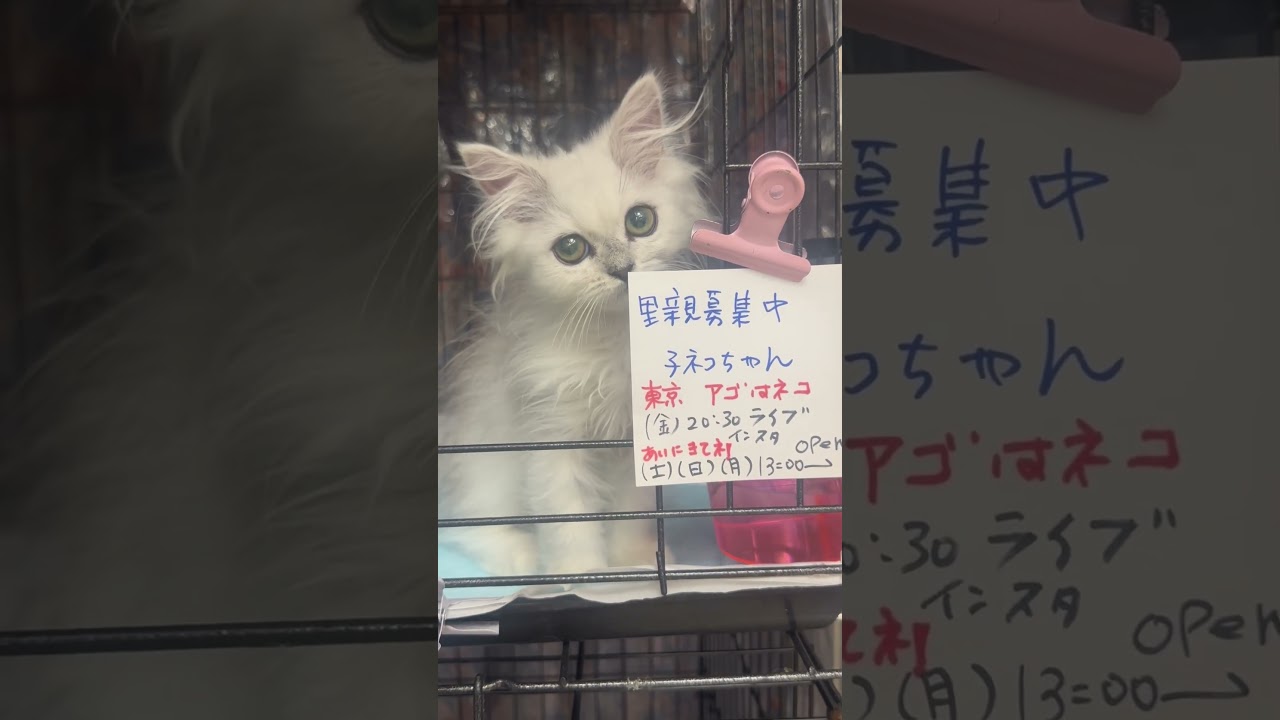 里親募集中
子ネコちゃん
東京 アゴはネコ
(金) 20:30 ライブ
インスタ
あいにきてネ! open
(土)(日)(月) 13=00→